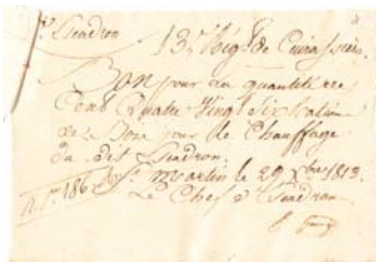 Escadron 13e Régt de Cuirassiers
Bon pour la quantité de
Cent Quatre Vingt Six Rations
de Bois pour le Chauffage
du dit Escadron
St Martin le 29 Xbre 1813.
Le Chef d'Escadron